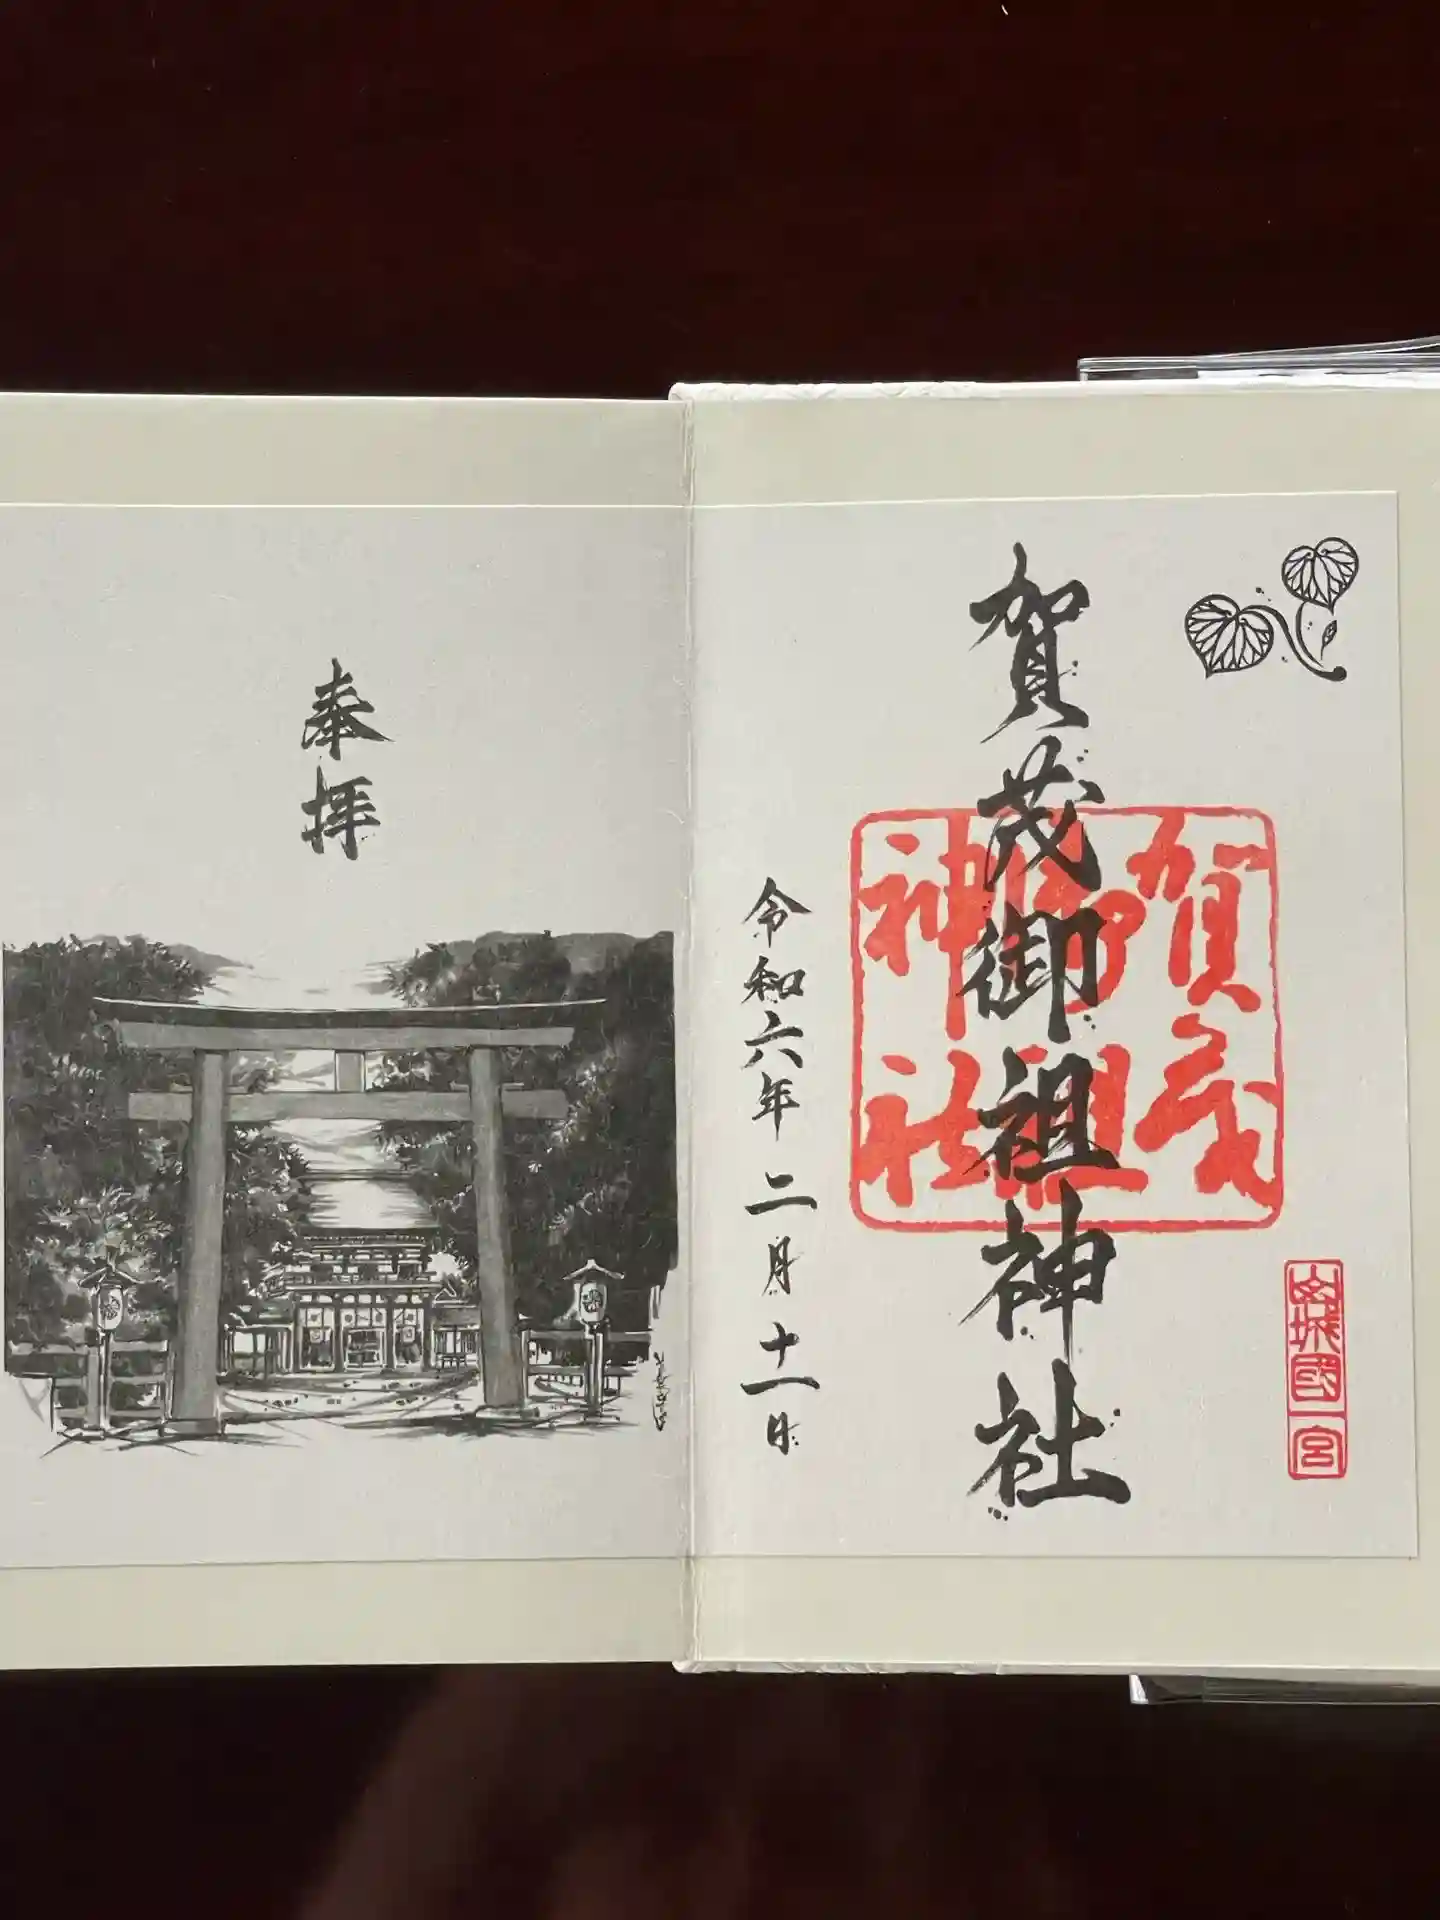 山城國一宮
賀茂御祖神社
賀茂
御祖
神社
令和六年二月十一日
奉拝